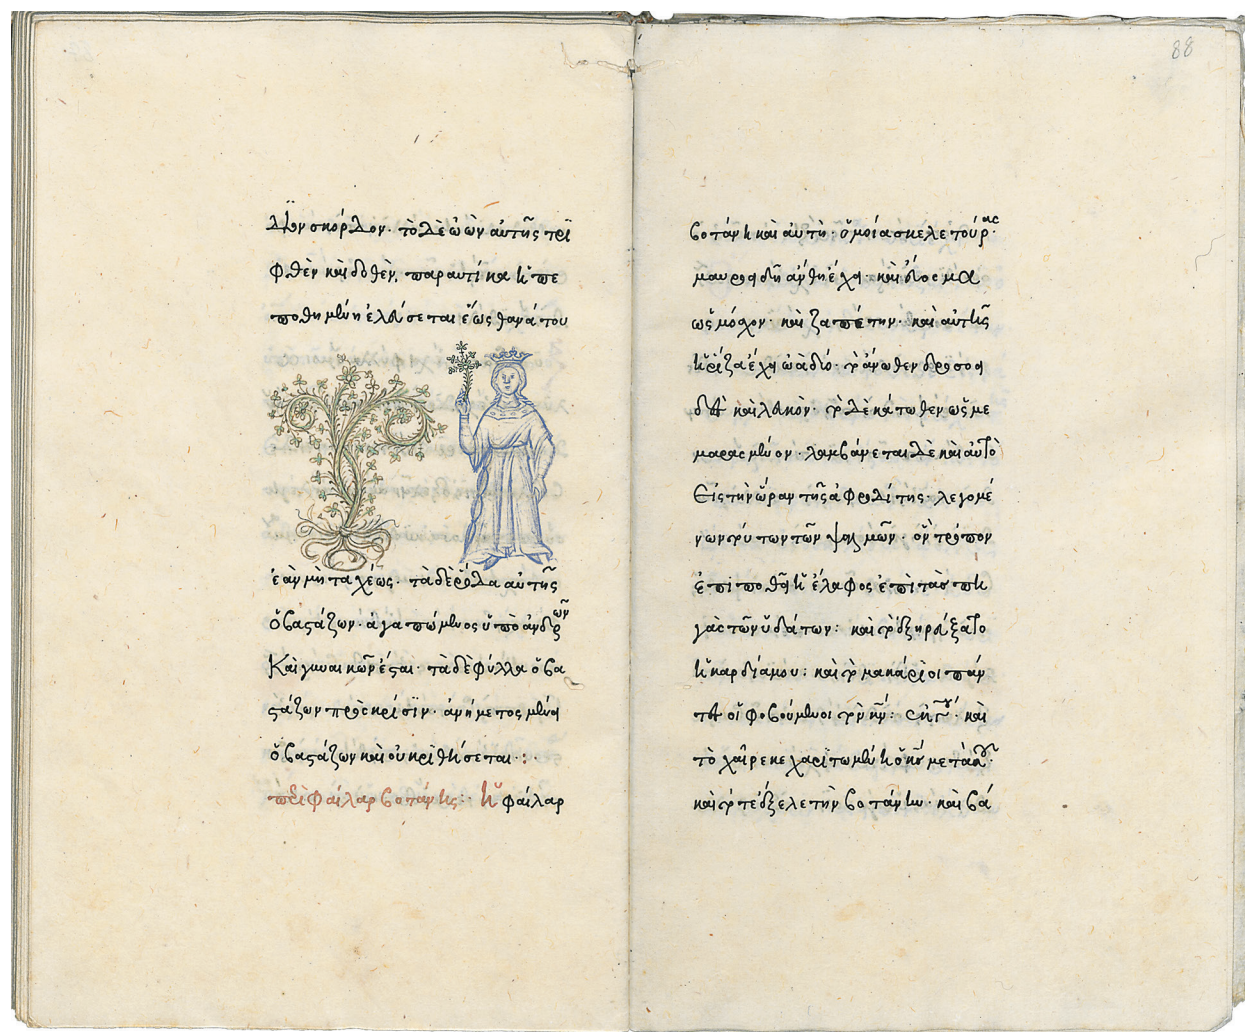 σκόρδον· τὸ δὲ ὠὸν αὐτῆς τρι
φθὲν καὶ δοθὲν, παραυτίκα ἡ πε
ποθημένη ἐλεύσεται ἕως θανάτου
ἐὰν μὴ ταχέως· τὰ δὲ ῥόδα αὐτῆς
ὁ βαστάζων· ἀγαπώμενος ὑπὸ ἀνδρῶν
Καὶ γυναικῶν ἔσται· τὰ δὲ φύλλα ὁ βα
στάζων πρὸς κρίσϊν· ἀνήμετος μένει
ὁ βαστάζων καὶ οὐ κριθήσεται·:·
περὶ φαίλαρ βοτάνης:· ἡ φαίλαρ
88
βοτάνη καὶ αὐτὴ· ὅμοία σκελετούρας·
μαυροειδῆ ἄνθη ἔχει· καὶ εἶδος μα
ὡς μόσχον· καὶ ζαπέτην· καὶ αὐτῆς
ἡ ῥίζα ἔχει ὠὰ δύο· τὸ ἄνωθεν δροσο
καὶ λευκὸν· τὸ δὲ κάτωθεν ὡς με
μαραμένον· λαμβάνεται δὲ καὶ αὐτὸ
Εἰς τὴν ὥραν τῆς ἀφροδίτης· λεγομέ
νων τούτων τῶν ψαλμῶν· ὃν τρόπον
ἐπιποθεῖ ἡ ἔλαφος ἐπὶ τὰς πη
γὰς τῶν ὑδάτων: καὶ τὸ ἐξηρεύξατο
ἡ καρδία μου: καὶ τὸ μακάριοι πάν
τες οἱ φοβούμενοι τὸν κν: καὶ
τὸ χαῖρε κεχαριτωμένη ὁ κς μετὰ σοῦ·
καὶ τότε ἔξελε τὴν βοτάνην· καὶ βά